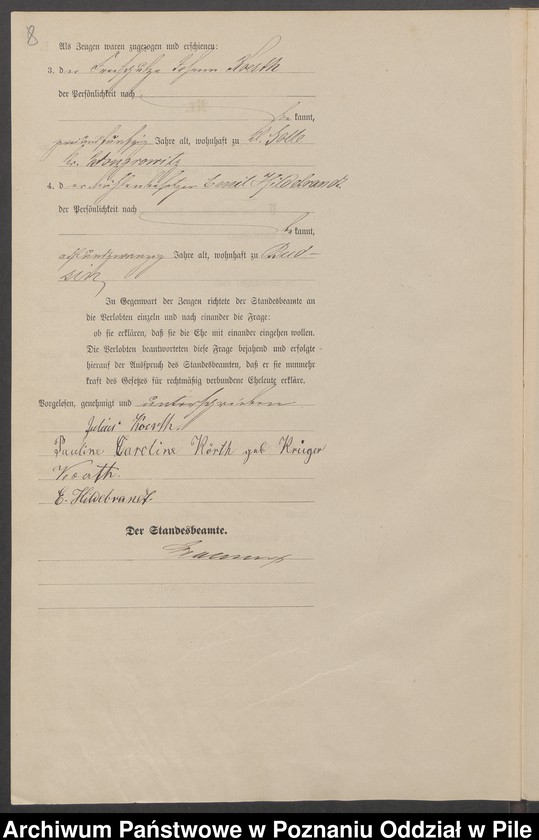 8
Als Zeugen waren zugezogen und erschienen:
3. der Freischulze Johann Koerth
der Persönlichkeit nach
be kannt,
Jahre alt, wohnhaft zu
Kr. Wongrowitz
4. der Mühlenbesitzer Emil Hildebrandt
der Persönlichkeit nach
be kannt,
achtundzwanzig Jahre alt, wohnhaft zu Bud-
sin
In Gegenwart der Zeugen richtete der Standesbeamte an
die Verlobten einzeln und nach einander die Frage:
ob sie erklären, daß sie die Ehe mit einander eingehen wollen.
Die Verlobten beantworteten diese Frage bejahend und erfolgte
hierauf der Ausspruch des Standesbeamten, daß er sie nunmehr
kraft des Gesetzes für rechtmäßig verbundene Eheleute erkläre.
Vorgelesen, genehmigt und unterschrieben
Julius Koerth
Pauline Caroline Körth geb Krüger
E. Hildebrandt
Der Standesbeamte.
Archiwum Państwowe w Poznaniu Oddział w Pile